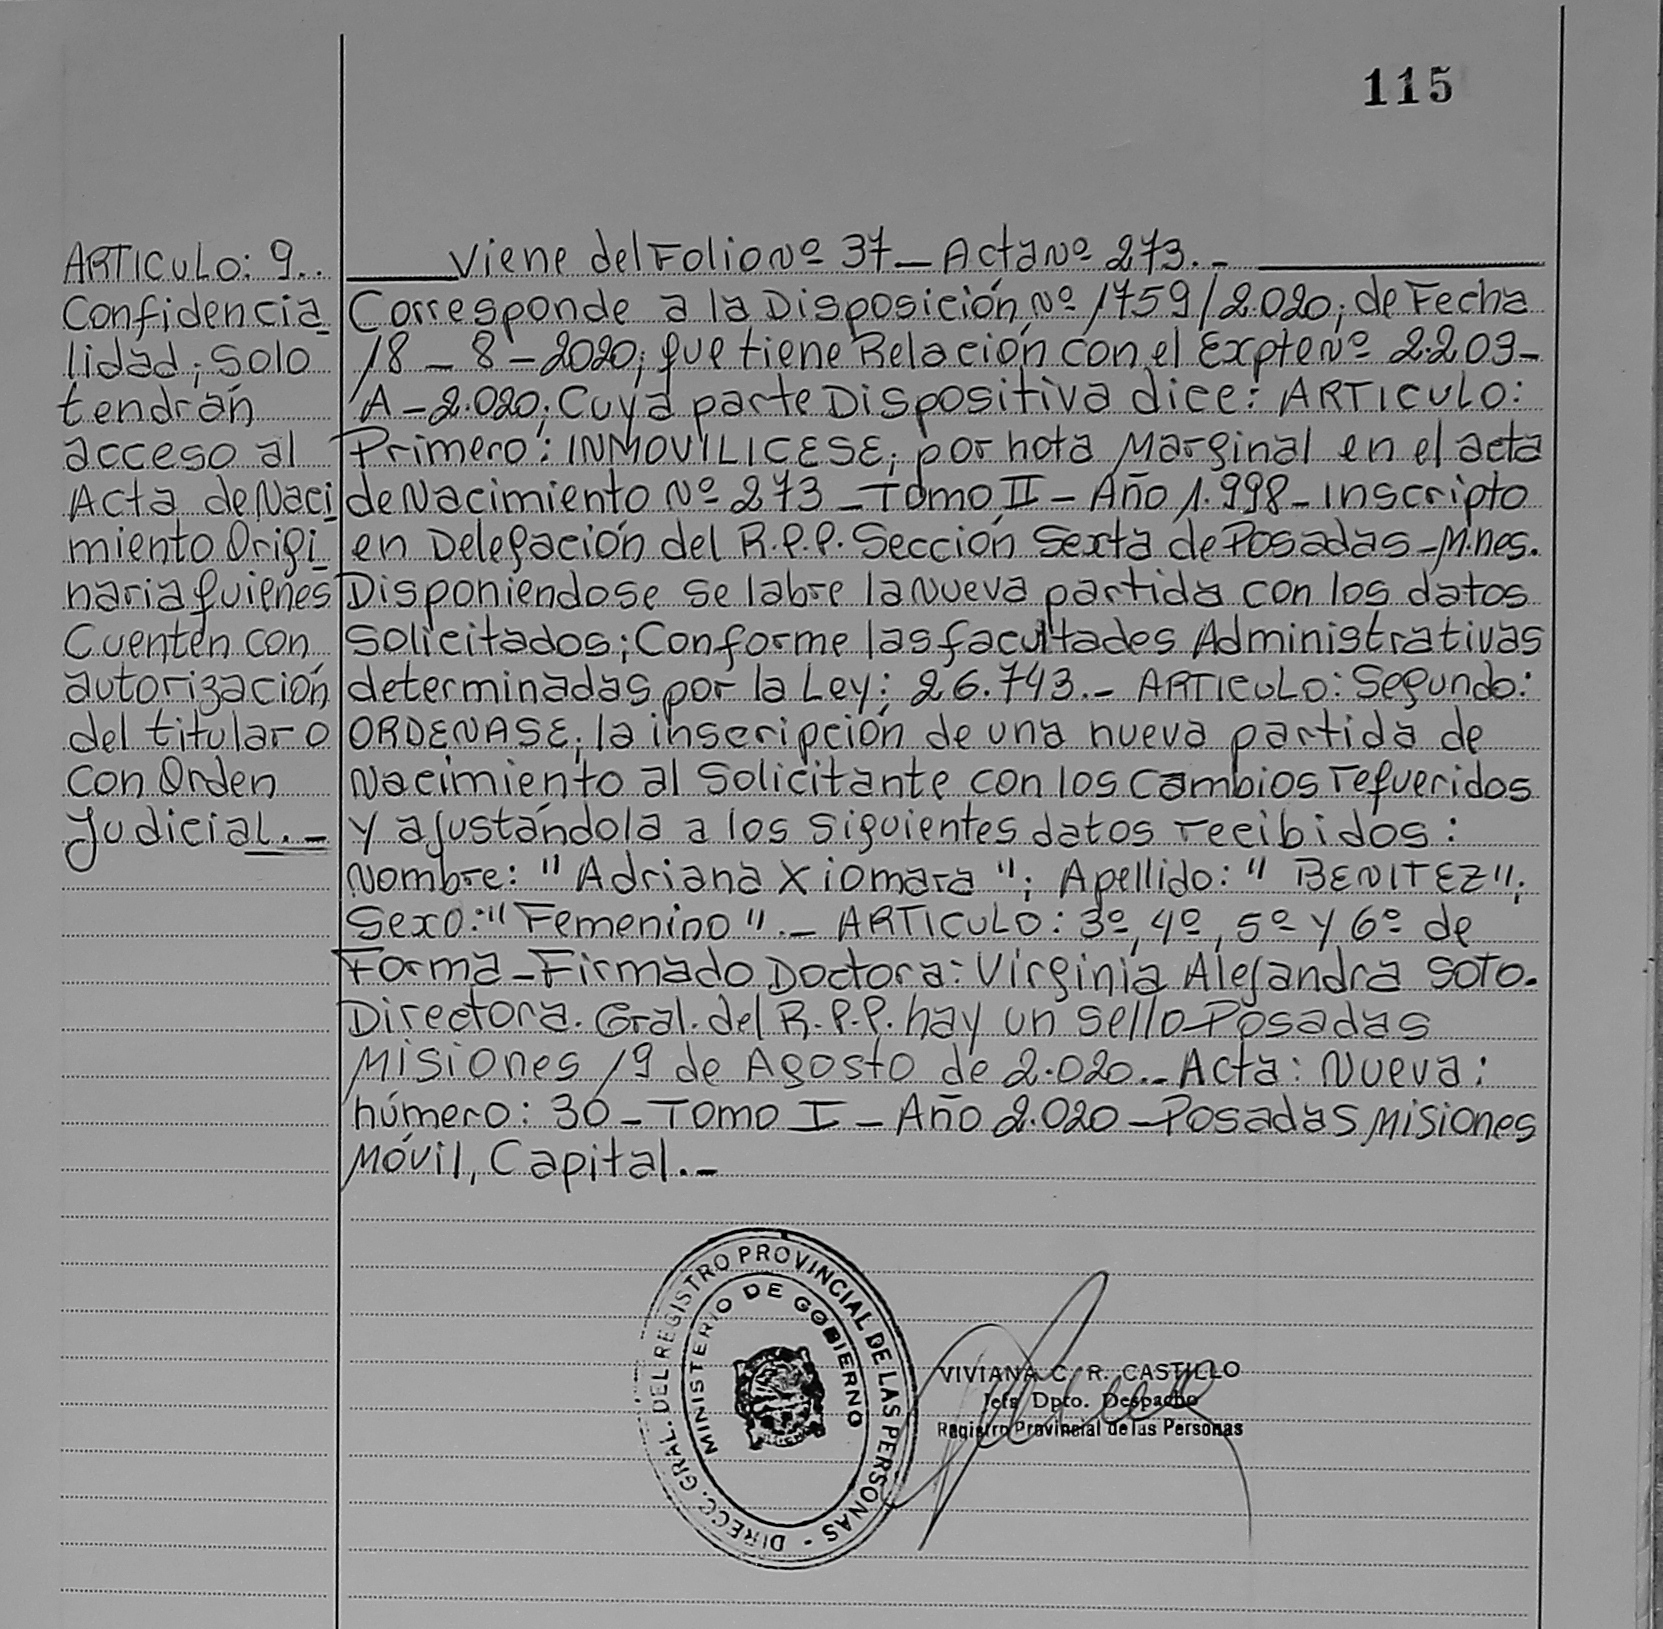 115
ARTICULO: 9..
Confidencia_
lidad; Solo
tendrán
acceso al
Acta de Naci
miento Origi_
naria quienes
Cuenten con
autorización
del titular o
con Orden
Judicial._
Viene del Folio Nº 37_ Acta Nº 273._
Corresponde a la Disposición Nº 1759/2.020; de Fecha
18_8_2020; que tiene Relación con el Expte Nº 2.209_
A_2.020; Cuya parte Dispositiva dice: ARTICULO:
Primero: INMOVILICESE; por nota Marginal en el acta
de Nacimiento Nº 273_Tomo II_Año 1.998_Inscripto
en Delegación del R.P.P. Sección Sexta de Posadas_Mnes.
Disponiendose se labre la Nueva partida con los datos
Solicitados; Conforme las facultades Administrativas
determinadas por la Ley; 26.743._ ARTICULO: Segundo:
ORDENASE; la inscripción de una nueva partida de
Nacimiento al Solicitante con los Cambios requeridos
y ajustándola a los siguientes datos recibidos:
Nombre: "Adriana Xiomara"; Apellido: "BENITEZ";
Sexo: "Femenino"._ ARTICULO: 3º, 4º, 5º y 6º de
Forma_Firmado Doctora: Virginia Alejandra SOTO.
Directora. Gral. del R.P.P. hay un sello_Posadas
Misiones 19 de Agosto de 2.020._ Acta: Nueva:
número: 30_Tomo I_Año 2.020_Posadas Misiones
Móvil, Capital._
DIRECC. GRAL. DEL REGISTRO PROVINCIAL DE LAS PERSONAS -
MINISTERIO DE GOBIERNO
VIVIANA C. R. CASTILLO
Jefa Dpto. Despacho
Registro Provincial de las Personas